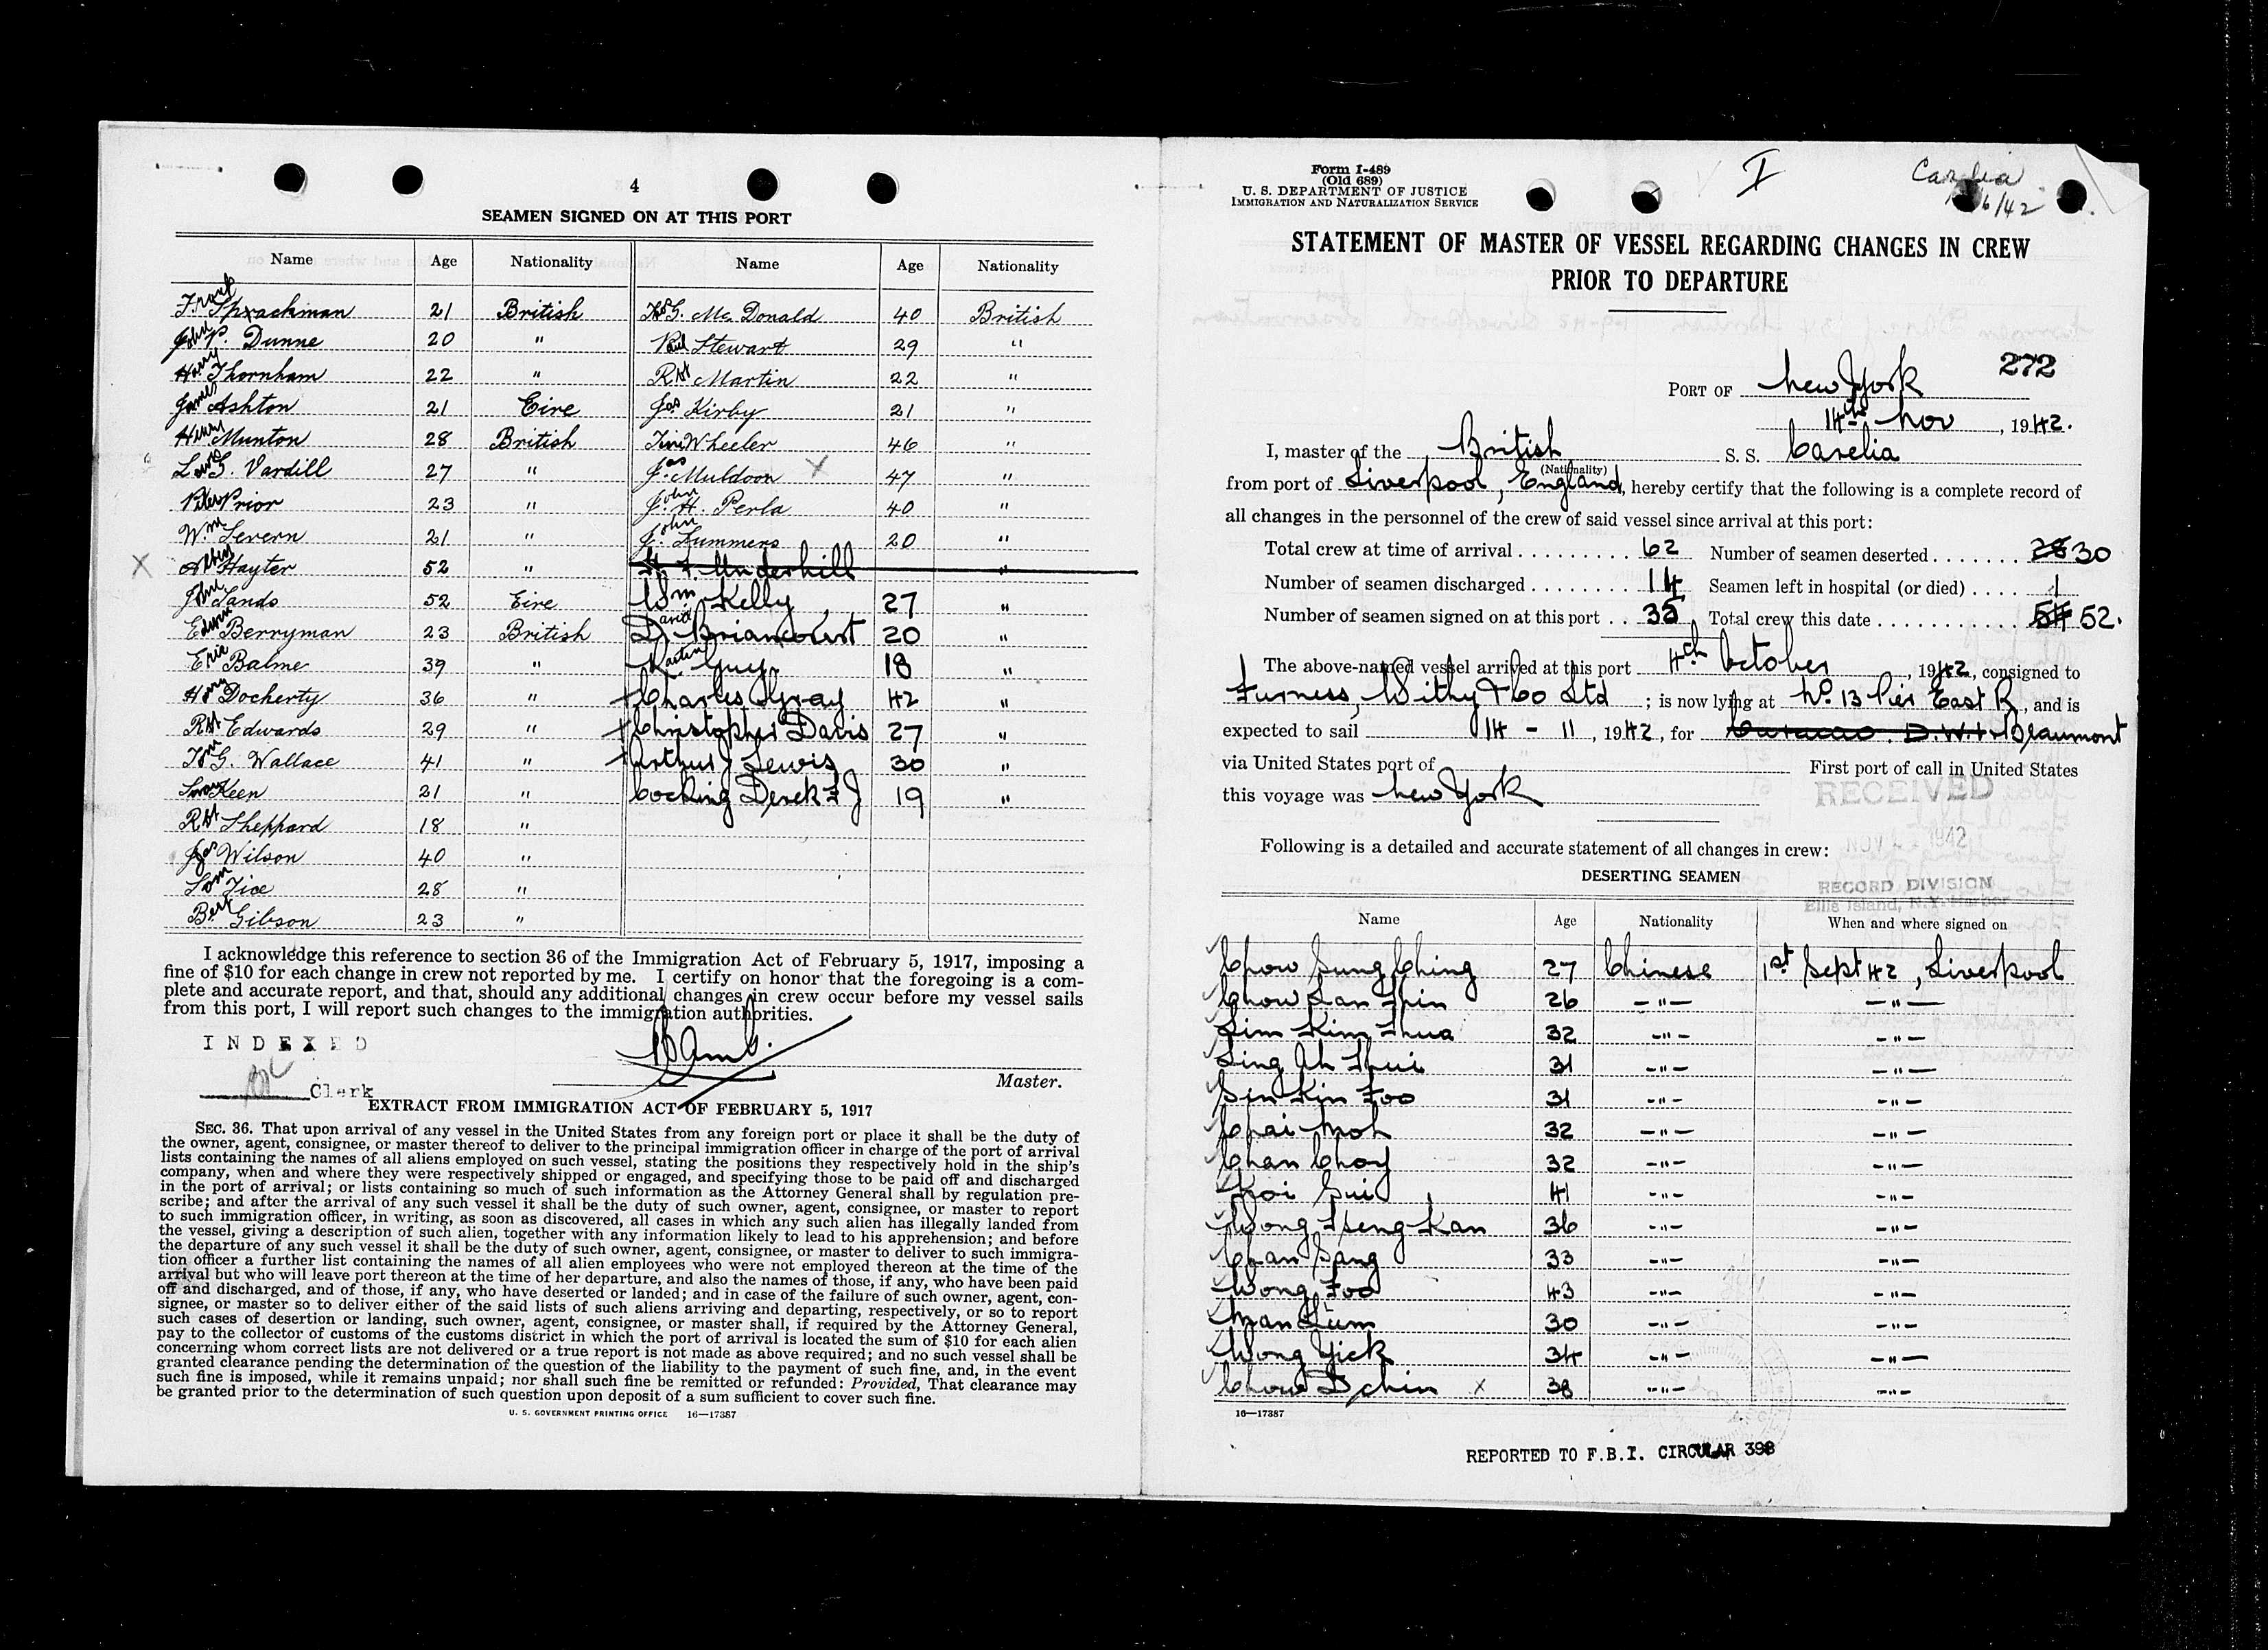 4
SEAMEN SIGNED ON AT THIS PORT
Name Age Nationality Name Age Nationality
Frank Sprachman 21 British McDonald 40 British
John P. Dunne 20 " Paul Stewart 29 "
Harry Thornham 22 " Rbt Martin 22 "
James Ashton 21 Eire Jas Kirby 21 "
Henry Munton 28 British Wheeler 46 "
G. Vardill 27 " Jas Muldoon X 47 "
Peter Prior 23 " John H. Perla 40 "
Wm Severn 21 " John Summers 20 "
X Albert Hayter 52 " Underhill "
John Sands 52 Eire Wm Kelly 27 "
Edwin Berryman 23 British David Briancourt 20 "
Eric Balme 39 " Martin Guy 18 "
Docherty 36 " Charles Gray 42 "
Rbt Edwards 29 " Christopher Davis 27 "
G. Wallace 41 " Arthur J Lewis 30 "
Keen 21 " Cocking Derek F J 19 "
Rbt Sheppard 18 "
Jas Wilson 40 "
Tom Tice 28 "
Bert Gibson 23 "
I acknowledge this reference to section 36 of the Immigration Act of February 5, 1917, imposing a
fine of $10 for each change in crew not reported by me. I certify on honor that the foregoing is a com-
plete and accurate report, and that, should any additional changes in crew occur before my vessel sails
from this port, I will report such changes to the immigration authorities.
INDEXED
Master.
Clerk
EXTRACT FROM IMMIGRATION ACT OF FEBRUARY 5, 1917
SEC. 36. That upon arrival of any vessel in the United States from any foreign port or place it shall be the duty of
the owner, agent, consignee, or master thereof to deliver to the principal immigration officer in charge of the port of arrival
lists containing the names of all aliens employed on such vessel, stating the positions they respectively hold in the ship's
company, when and where they were respectively shipped or engaged, and specifying those to be paid off and discharged
in the port of arrival; or lists containing so much of such information as the Attorney General shall by regulation pre-
scribe; and after the arrival of any such vessel it shall be the duty of such owner, agent, consignee, or master to report
to such immigration officer, in writing, as soon as discovered, all cases in which any such alien has illegally landed from
the vessel, giving a description of such alien, together with any information likely to lead to his apprehension; and before
the departure of any such vessel it shall be the duty of such owner, agent, consignee, or master to deliver to such immigra-
tion officer a further list containing the names of all alien employees who were not employed thereon at the time of the
arrival but who will leave port thereon at the time of her departure, and also the names of those, if any, who have been paid
off and discharged, and of those, if any, who have deserted or landed; and in case of the failure of such owner, agent, con-
signee, or master so to deliver either of the said lists of such aliens arriving and departing, respectively, or so to report
such cases of desertion or landing, such owner, agent, consignee, or master shall, if required by the Attorney General,
pay to the collector of customs of the customs district in which the port of arrival is located the sum of $10 for each alien
concerning whom correct lists are not delivered or a true report is not made as above required; and no such vessel shall be
granted clearance pending the determination of the question of the liability to the payment of such fine, and, in the event
such fine is imposed, while it remains unpaid; nor shall such fine be remitted or refunded: Provided, That clearance may
be granted prior to the determination of such question upon deposit of a sum sufficient to cover such fine.
U. S. GOVERNMENT PRINTING OFFICE 16—17387
Form I-489
(Old 689)
U. S. DEPARTMENT OF JUSTICE
IMMIGRATION AND NATURALIZATION SERVICE
I
6/42
STATEMENT OF MASTER OF VESSEL REGARDING CHANGES IN CREW
PRIOR TO DEPARTURE
272
PORT OF New York
14th Nov, 1942.
I, master of the British S. S. Carelia
(Nationality)
from port of Liverpool, England, hereby certify that the following is a complete record of
all changes in the personnel of the crew of said vessel since arrival at this port:
Total crew at time of arrival . . . . . . . . . 62 Number of seamen deserted . . . . . . . 28 30
Number of seamen discharged . . . . . . . . 14 Seamen left in hospital (or died) . . . . 1
Number of seamen signed on at this port . . 35 Total crew this date . . . . . . . . . . . 54 52.
The above-named vessel arrived at this port 4th October, 1942, consigned to
Furness, Withy & Co Ltd ; is now lying at No. 13 Pier East R, and is
expected to sail 14 - 11, 1942, for Curacao. D.W.I. Beaumont
via United States port of First port of call in United States
this voyage was New York
RECEIVED
NOV 1942
Following is a detailed and accurate statement of all changes in crew:
RECORD DIVISION
Ellis Island, N.Y. Harbor
DESERTING SEAMEN
Name Age Nationality When and where signed on
Chow Sung Ching 27 Chinese 1st Sept 42, Liverpool
Chow Lan Shin 26 -"- -"-
Lim Kim Shua 32 -"- -"-
Ling Ah Shui 31 -"- -"-
Sin Kin Foo 31 -"- -"-
Chai Moh 32 -"- -"-
Chan Choy 32 -"- -"-
Koi Sui 41 -"- -"-
Wong Tseng Kan 36 -"- -"-
Chan Sang 33 -"- -"-
Wong Foo 43 -"- -"-
Man Lum 30 -"- -"-
Wong Yick 34 -"- -"-
Chow Dchin X 38 -"- -"-
16—17387
REPORTED TO F.B.I. CIRCULAR 398